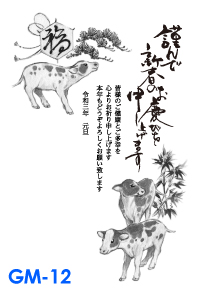 福
謹んで
新春のお慶びを
申し上げます
皆様のご健康とご多幸を
心よりお祈り申し上げます
本年もどうぞよろしくお願い致します
令和三年　元旦
GM-12